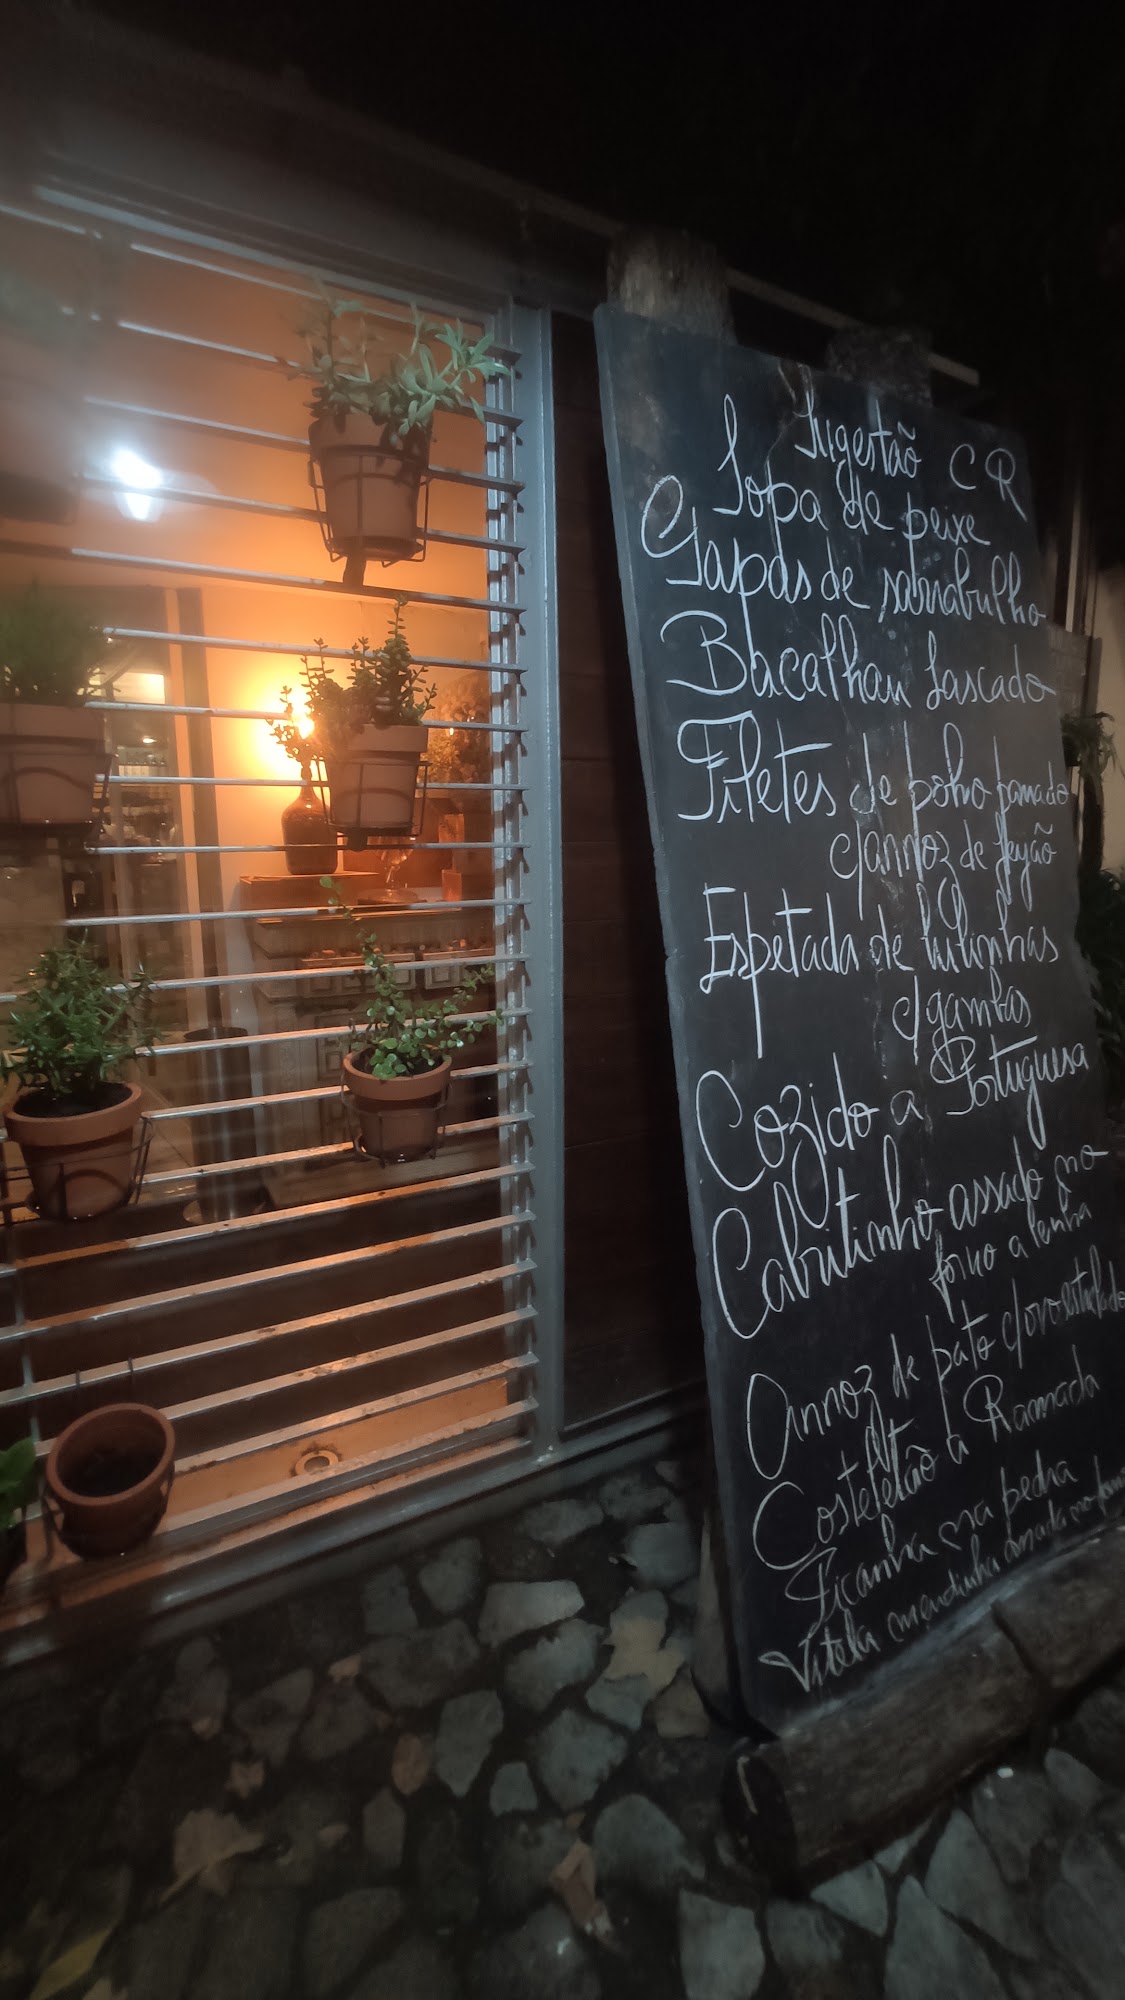 Sugestão CR
Sopa de peixe
Papas de sarrabulho
Bacalhau lascado
Filetes de polvo panado
c/arroz de feijão
Espetada de lulinhas
c/gambas
Cozido a Portuguesa
Cabritinho assado no
forno a lenha
Arroz de pato
Costeletão a Ramada
Picanha na pedra
Vitela mendinha assada no